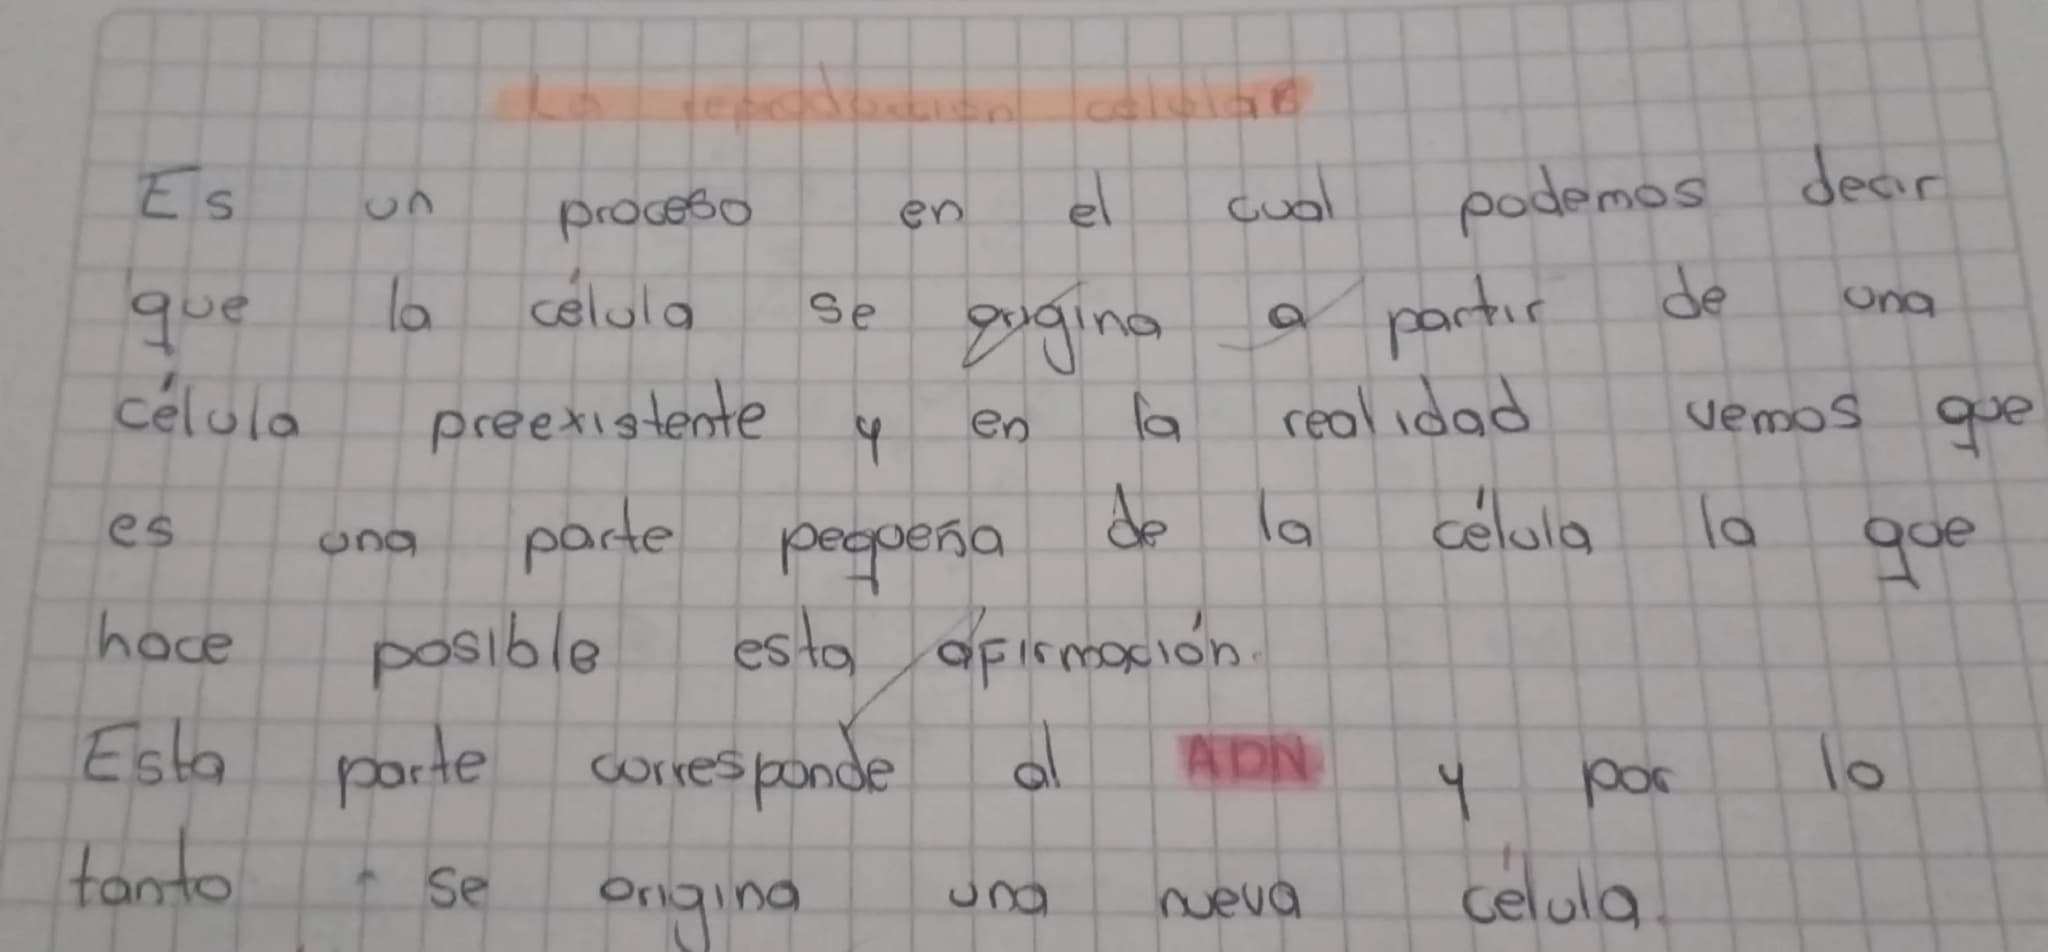 La reproducción celular
Es un proceso en el cual podemos decir
que la célula se origina a partir de una
célula preexistente y en la realidad vemos que
es una parte pequeña de la célula la que
hace posible esta afirmación.
Esta parte corresponde al ADN y por lo
tanto se origina una nueva célula.